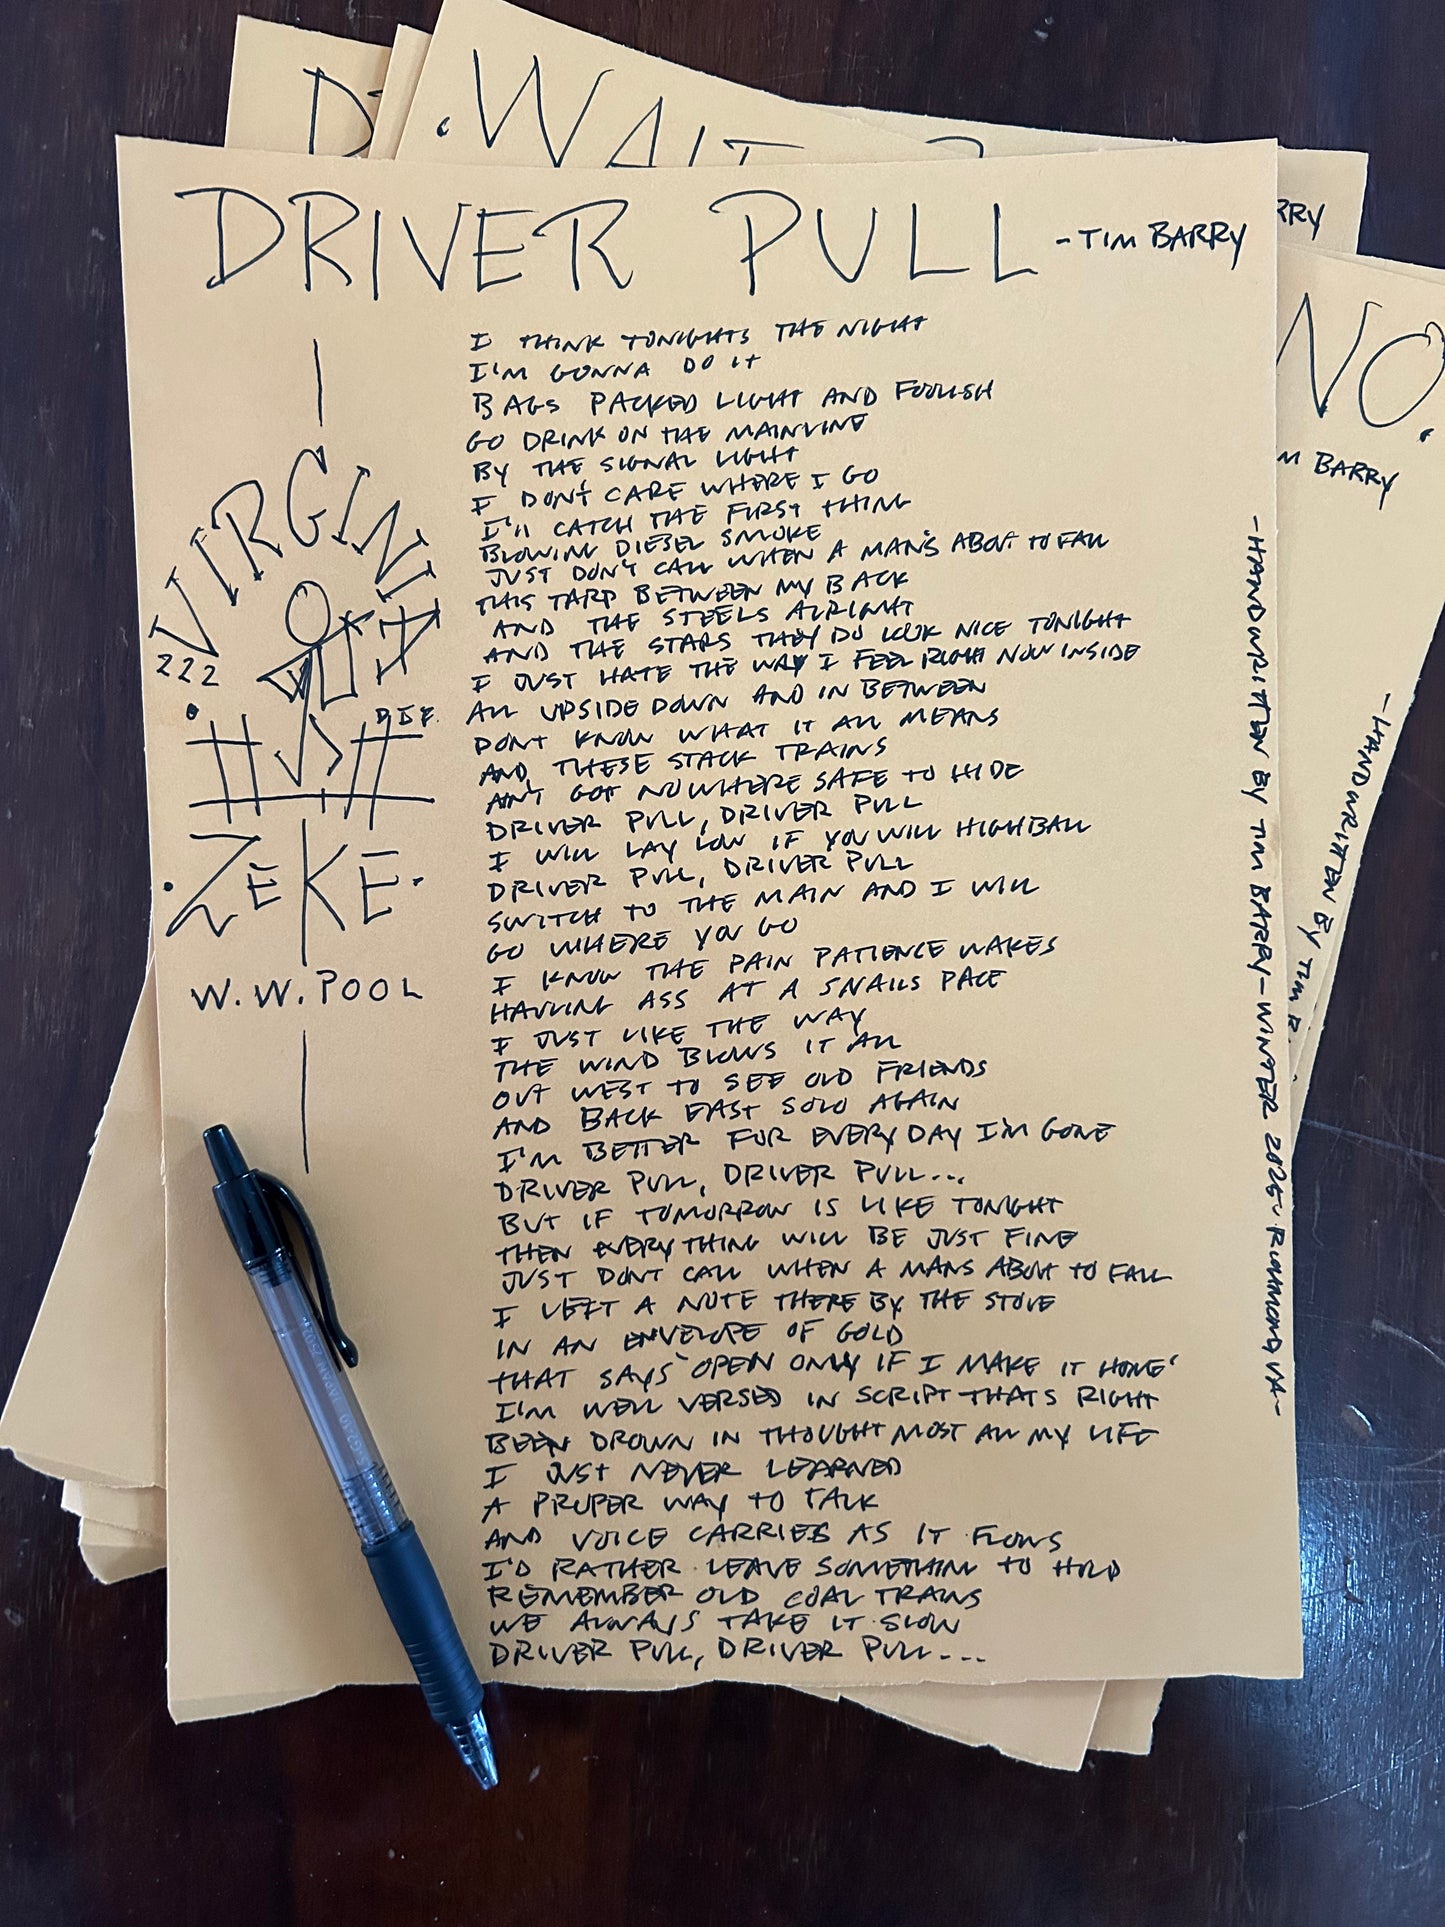 D
WAIT
DRIVER PULL
-TIM BARRY
RRY
NO.
M BARRY
I THINK TONIGHTS THE NIGHT
I'M GONNA DO IT
BAGS PACKED LIGHT AND FOOLISH
GO DRINK ON THE MAINLINE
BY THE SIGNAL LIGHT
I DON'T CARE WHERE I GO
I'll CATCH THE FIRST THING
BLOWING DIESEL SMOKE
JUST DON'T CALL WHEN A MAN'S ABOUT TO FALL
THIS TARP BETWEEN MY BACK
AND THE STEELS ALRIGHT
AND THE STARS THEY DO LOOK NICE TONIGHT
I JUST HATE THE WAY I FEEL RIGHT NOW INSIDE
ALL UPSIDE DOWN AND IN BETWEEN
DONT KNOW WHAT IT ALL MEANS
AND THESE STACK TRAINS
AIN'T GOT NOWHERE SAFE TO HIDE
DRIVER PULL, DRIVER PULL
I WILL LAY LOW IF YOU WILL HIGHBALL
DRIVER PULL, DRIVER PULL
SWITCH TO THE MAIN AND I WILL
GO WHERE YOU GO
I KNOW THE PAIN PATIENCE WAKES
HAULING ASS AT A SNAILS PACE
I JUST LIKE THE WAY
THE WIND BLOWS IT ALL
OUT WEST TO SEE OLD FRIENDS
AND BACK EAST SOLO AGAIN
I'M BETTER FOR EVERY DAY I'M GONE
DRIVER PULL, DRIVER PULL...
BUT IF TOMORROW IS LIKE TONIGHT
THEN EVERYTHING WILL BE JUST FINE
JUST DONT CALL WHEN A MANS ABOUT TO FALL
I LEFT A NOTE THERE BY THE STOVE
IN AN ENVELOPE OF GOLD
THAT SAYS 'OPEN ONLY IF I MAKE IT HOME'
I'M WELL VERSED IN SCRIPT THATS RIGHT
BEEN DROWN IN THOUGHT MOST ALL MY LIFE
I JUST NEVER LEARNED
A PROPER WAY TO TALK
AND VOICE CARRIES AS IT FLOWS
I'D RATHER LEAVE SOMETHIN TO HOLD
REMEMBER OLD COAL TRAINS
WE ALWAYS TAKE IT SLOW
DRIVER PULL, DRIVER PULL...
VIRGINIA
222
ZEKE
W.W.POOL
-HANDWRITTEN BY TIM BARRY-WINTER 2025~RICHMOND, VA-
-HANDWRITTEN BY TIM B